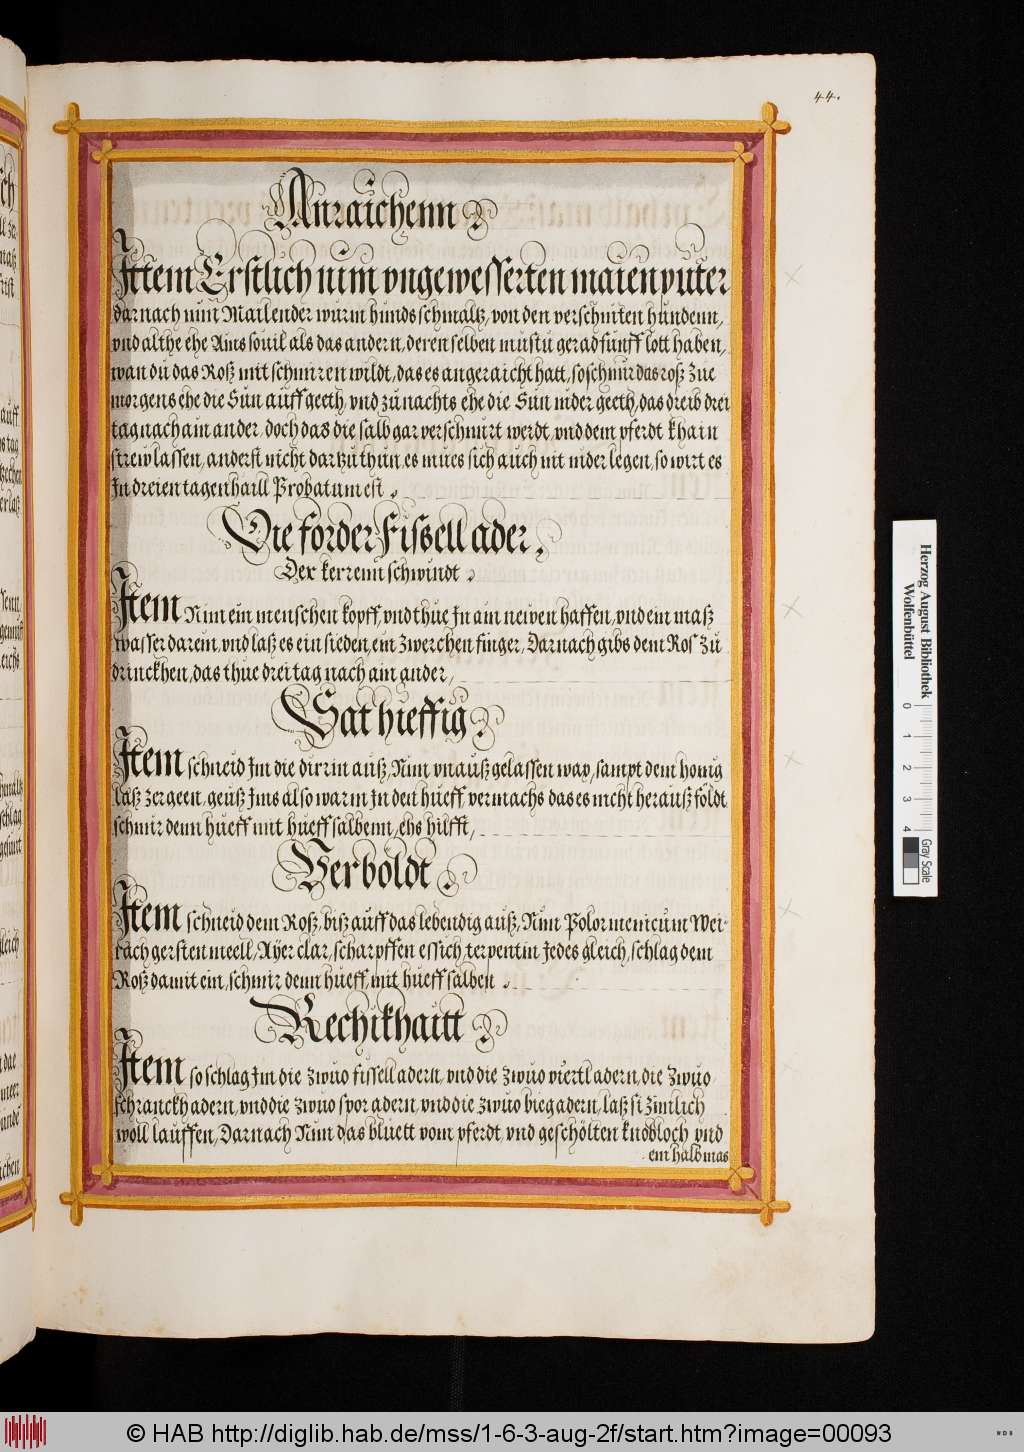 44.
Anraichenn
Ittem Erstlich nim vngewesserten maienputer
darnach nim Mailender wurm hundsschmaltz, von den verschniten hundenn,
vnd althe ehe Ains souil als das andern, deren selben mustu gerad funff lott haben,
wan du das Roß mit schmirren wildt, das es angeraicht hatt, so schmir das roß Zue
morgens ehe die Sun auffgeeth, vnd zu nachts ehe die Sun nider geeth, das dreib drei
tag nach ain ander, doch das die salb gar verschmirt werdt, vnd dem pferdt khain
strew lassen, anderst nicht dartzu thun, es mues sich auch nit nider legen, so wirt es
In dreien tagen haill Probatum est
Die forder Fissell ader
Der kerrenn schwindt
Item Nim ein menschen kopff, vnd thue In ain newen haffen, vnd ein maß
wasser darein, vnd laß es ein sieden, ein zwerchen finger, Darnach gibs dem Ros Zu
drinckhen, das thue drei tag nach ain ander,
Sat hieffig
Item schneid Im die dirrin auß, Nim vnaußgelassen wax, sampt dem honig
laß zergeen, geuß Ims also warm In den hueff, vermachs das es nicht herauß foldt
schmir denn hueff mit hueffsalbenn, ehs hilfft,
Verböldt
Item schneid dem Roß, biß auff das lebendig auß, Nim Polor menicum Wei-
rach gersten meell, Ayer clar, scharpffen essich, terpentin Jedes gleich, schlag dem
Roß damit ein, schmir denn hueff mit hueffsalben
Rechikhaitt
Item so schlag Im die Zwuo fissell adern, vnd die Zwuo viertl adern, die Zwuo
schranckh adern, vnd die Zwuo spor adern, vnd die Zwuo bieg adern, laß si Zimlich
woll lauffen, Darnach Nim das bluett vom pferdt, vnd geschölten knobloch vnd
ein halb mas
Herzog August Bibliothek
Wolfenbüttel
0 1 2 3 4
Gray Scale
© HAB http://diglib.hab.de/mss/1-6-3-aug-2f/start.htm?image=00093